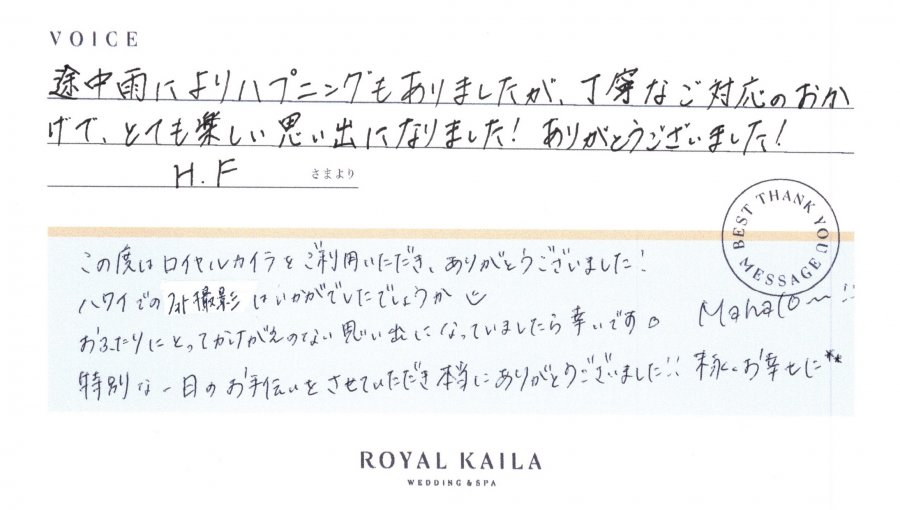 VOICE
途中雨によりハプニングもありましたが、丁寧なご対応のおか
げで、とても楽しい思い出になりました！ ありがとうございました！
H.F さまより
BEST THANK YOU MESSAGE
この度はロイヤルカイラをご利用いただき、ありがとうございました！
ハワイでのフォト撮影はいかがでしたでしょうか
おふたりにとってかけがえのない思い出になっていましたら幸いです。 Mahalo〜
特別な一日のお手伝いをさせていただき本当にありがとうございました!! 末永くお幸せに**
ROYAL KAILA
WEDDING & SPA